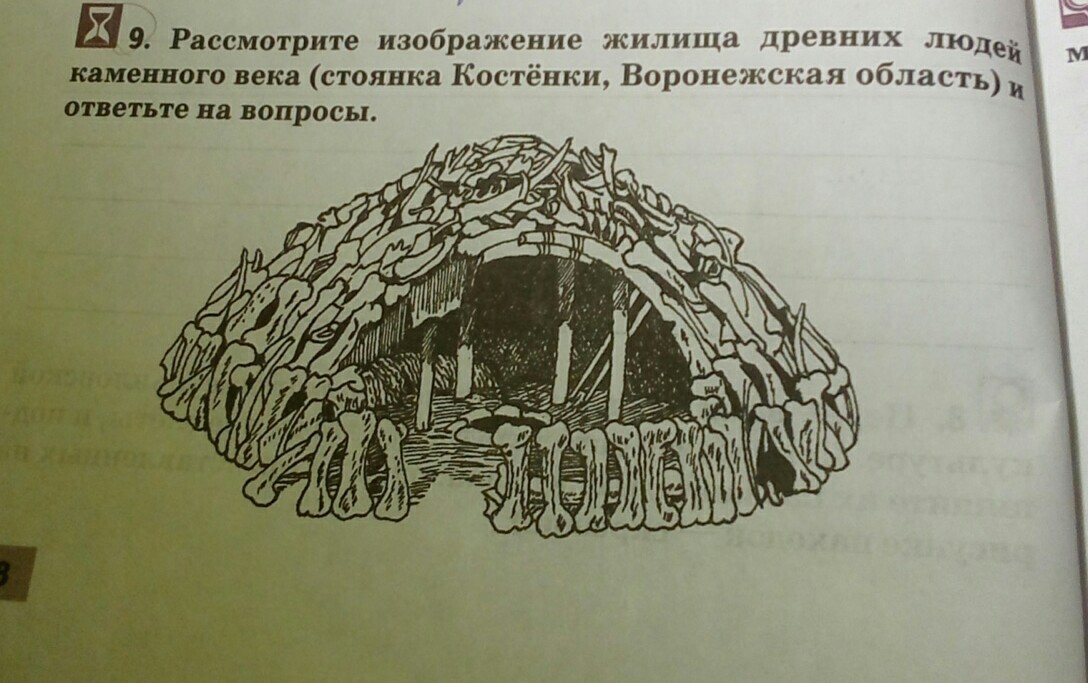 9. Рассмотрите изображение жилища древних людей
каменного века (стоянка Костёнки, Воронежская область) и
ответьте на вопросы.